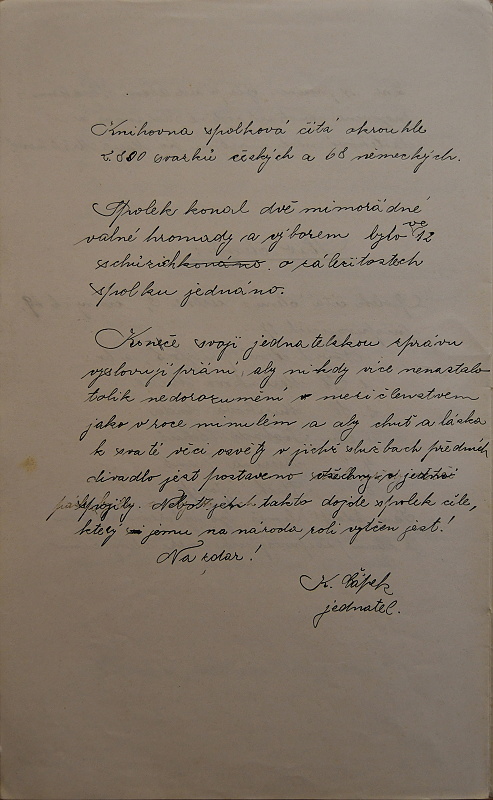 Knihovna spolková čítá okrouhle
800 svazků českých a 68 německých.
Spolek konal dvě mimořádné
valné hromady a výborem bylo ve 12
schůzích konáno o záležitostech
spolku jednáno.
Konče svoji jednatelskou zprávu
vyslovuji přání, aby nikdy více nenastalo
tolik nedorozumění mezi členstvem
jako v roce minulém a aby chuť a láska
k svaté věci osvěty v jichž službách předních
divadlo jest postaveno všechny
spojily. Neboť jen takto dojde spolek cíle,
který jemu na národa roli vytčen jest!
Na zdar!
K. Čápek
jednatel.